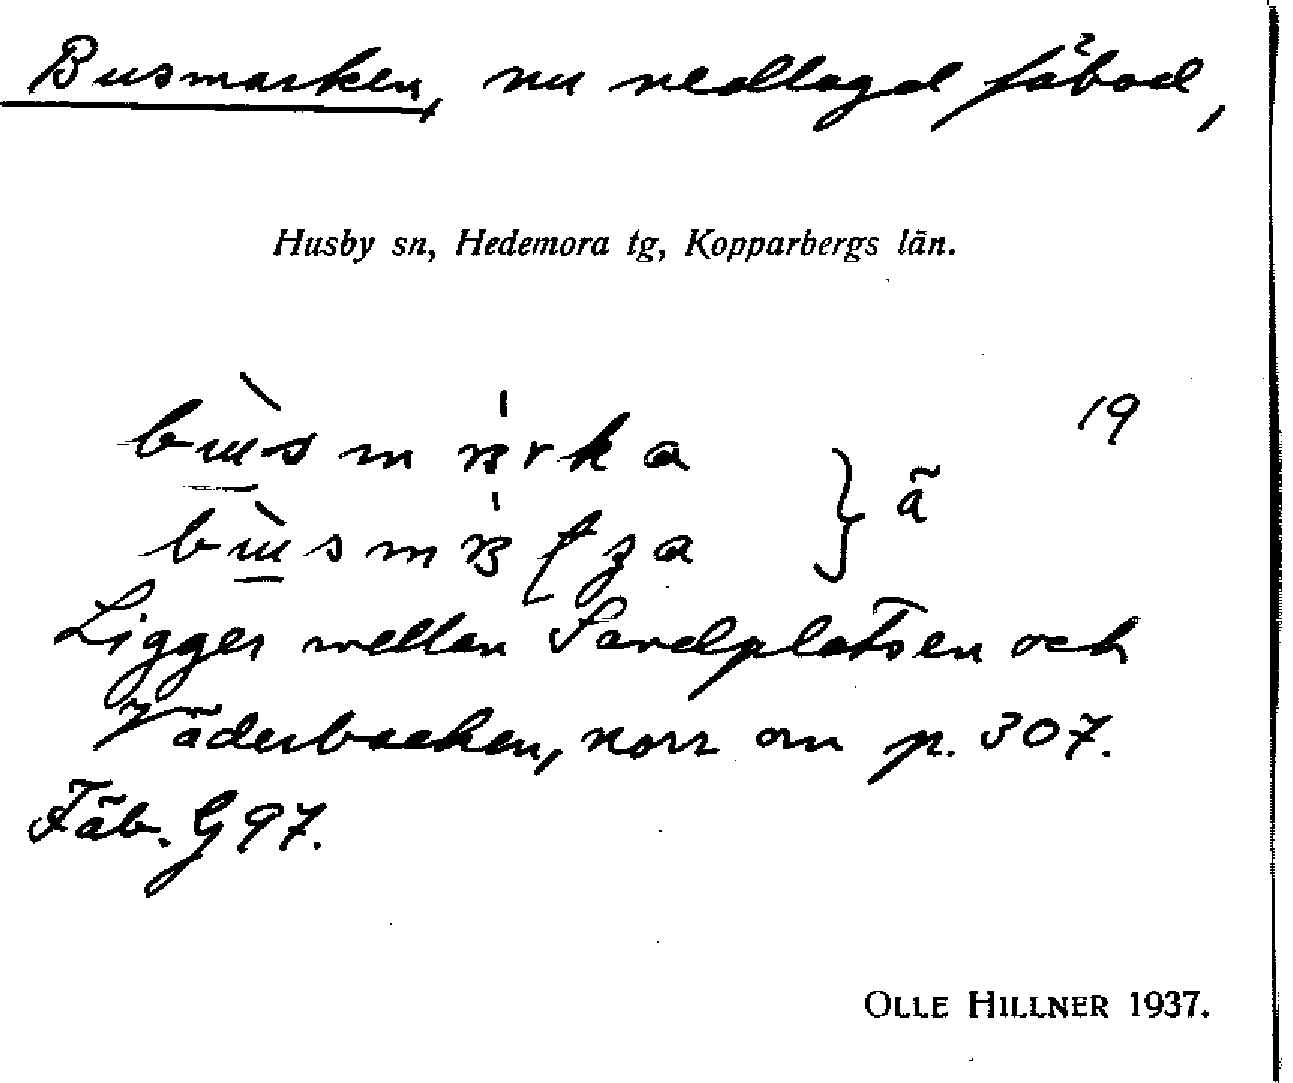 Busmarken, nu nedlagd fäbod,
Husby sn, Hedemora tg, Kopparbergs län.
19
} ã
Ligger mellan Sandplatsen och
Väderbacken, norr om p. 307.
Fäb. G 97.
OLLE HILLNER 1937.